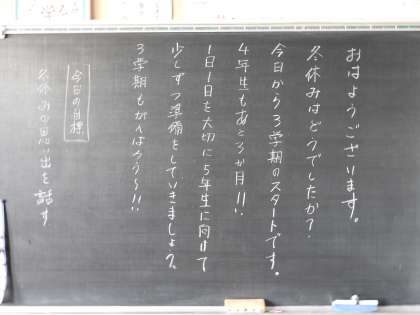 おはようございます。
冬休みはどうでしたか？
今日から3学期のスタートです。
4年生もあと3か月!!
1日1日を大切に、5年生に向けて
少しずつ準備をしていきましょう。
3学期もがんばろう〜!!
今日の目標
冬休みの思い出を話す